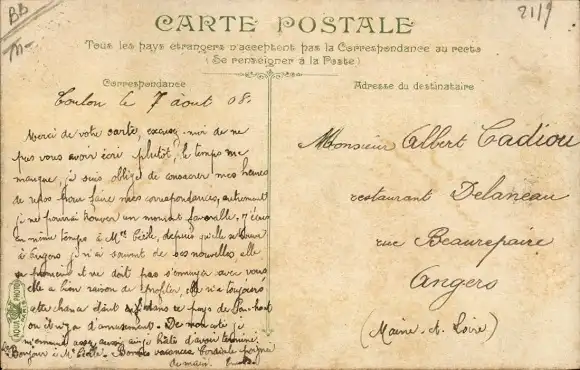 BB
2119
CARTE POSTALE
Tous les pays étrangers n'acceptent pas la Correspondance au recto
(Se renseigner à la Poste)
Correspondance
Adresse du destinataire
Toulon le 7 août 08.
Merci de votre carte, excusez-moi de ne
pas vous avoir écri plutôt, le temps me
manque, je suis obligé de consacrer mes heures
de repos pour faire mes correspondances, autrement
je ne pourrai trouver un moment favorable. J'écris
en même temps à Mlle Cécile, depuis qu'elle se trouve
à Angers je n'ai souvent de ses nouvelles elle
se promène et ne doit pas s'ennuyer avec vous
elle a bien raison de profiter, elle n'a toujours
cette chance étant dans ce pays de
où il n'y a d'amusement. De mon côté je
m'ennuie assez aussi ai-je hâte d'avoir terminé.
Bonjour à Mlle Cécile. Bonnes vacances Cordiale poignée
de main.
Monsieur Albert Cadiou
restaurant Delaneau
rue Beaurepaire
Angers
(Maine-&-Loire)